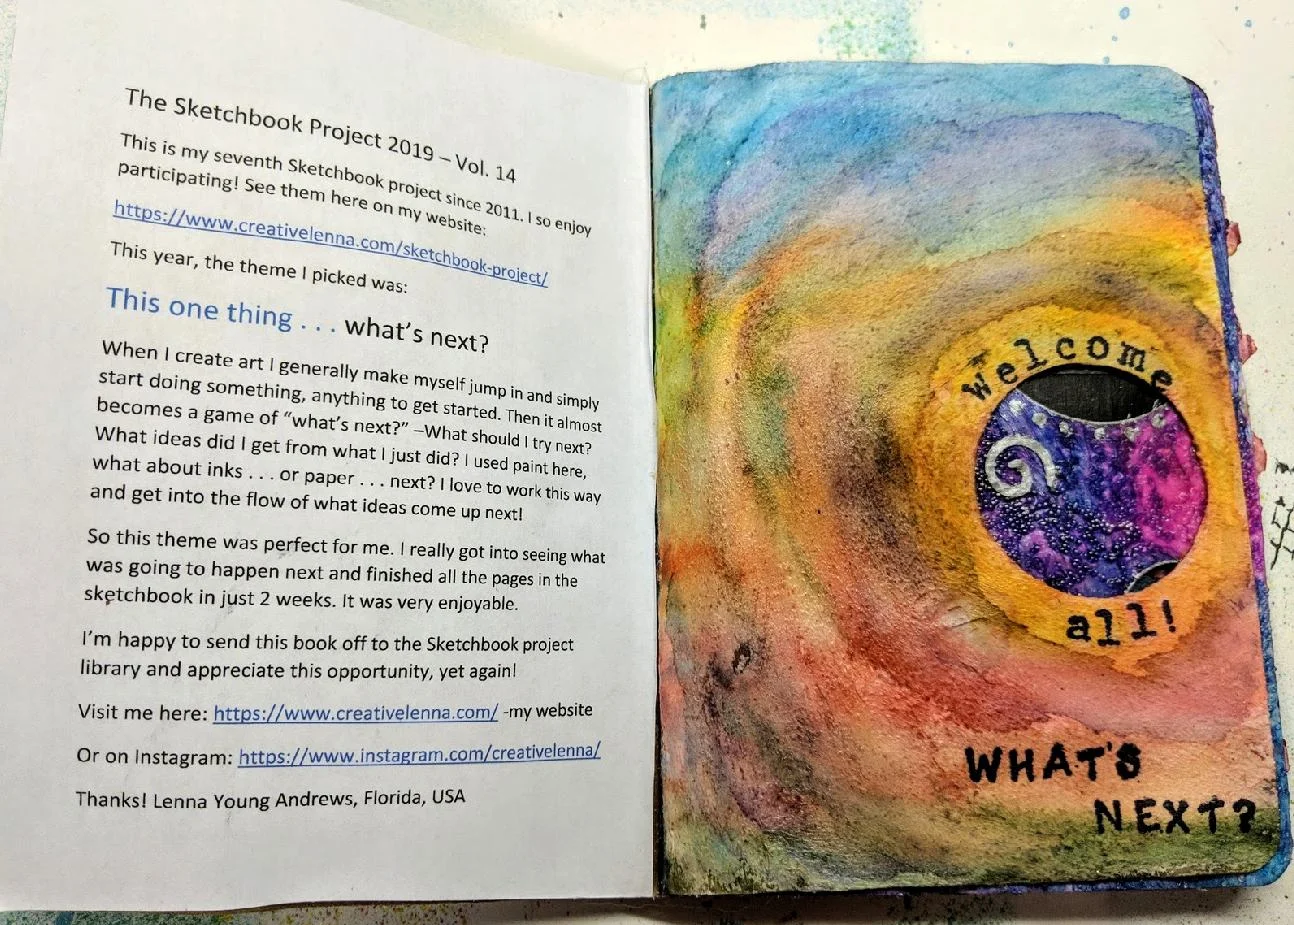 The Sketchbook Project 2019 – Vol. 14
This is my seventh Sketchbook project since 2011. I so enjoy
participating! See them here on my website:
https://www.creativelenna.com/sketchbook-project/
This year, the theme I picked was:
This one thing . . . what's next?
When I create art I generally make myself jump in and simply
start doing something, anything to get started. Then it almost
becomes a game of “what's next?” –What should I try next?
What ideas did I get from what I just did? I used paint here,
what about inks . . . or paper . . . next? I love to work this way
and get into the flow of what ideas come up next!
So this theme was perfect for me. I really got into seeing what
was going to happen next and finished all the pages in the
sketchbook in just 2 weeks. It was very enjoyable.
I'm happy to send this book off to the Sketchbook project
library and appreciate this opportunity, yet again!
Visit me here: https://www.creativelenna.com/ -my website
Or on Instagram: https://www.instagram.com/creativelenna/
Thanks! Lenna Young Andrews, Florida, USA
welcome
all!
WHAT'S
NEXT?